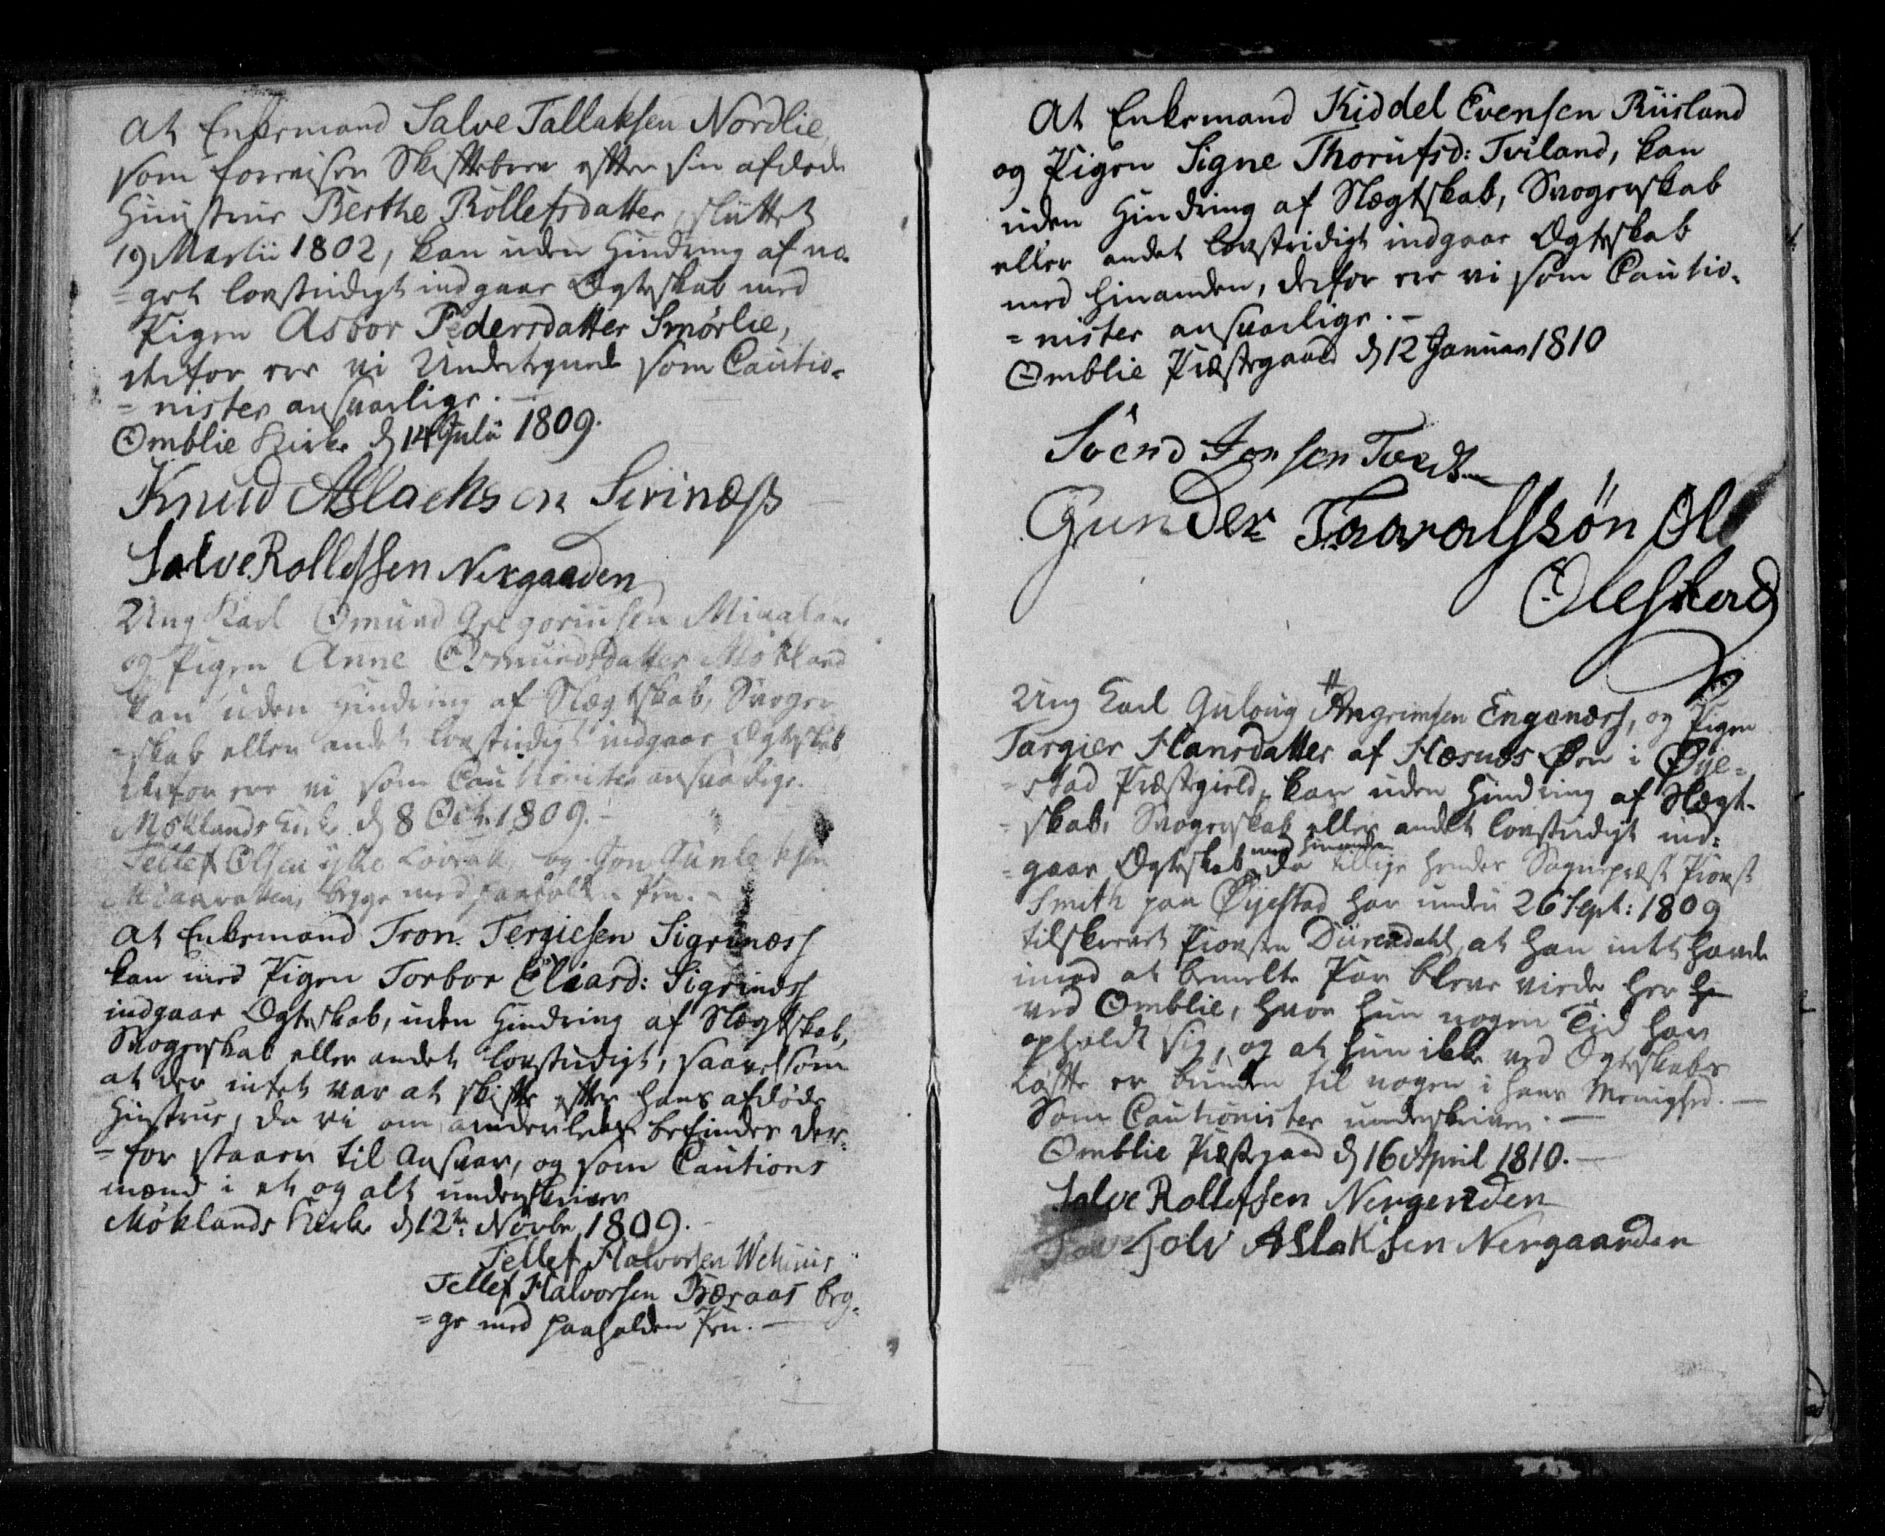 At Enkemand Salve Tallaksen Nordlie,
som foreviser Skiftebrev efter sin afdøde
Huustrue Berthe Rollefsdatter, sluttet
19 Martii 1802, kan uden Hindring af no-
=get lovstridigt indgaae Ægteskab med
Pigen Asbor Pedersdatter Smørlie,
derfor ere vi Undertegnede som Cautio-
=nister ansvarlige.
Omblie Kirke d 14 Julii 1809.
Knud Aslacksen Sirinæs
Salve Rollefssen Nergaarden
Ung Karl Omund Gregoriusen
og Pigen Anne Osmundsdatter Mökland
kan uden Hindring af Slægtskab, Svoger
=skab eller andet lovstridigt indgaae Ægteskab
derfor ere vi som Cautionister ansvarlige.
Möklands Kirke d 8 Octb 1809.
Tellef Olsen og Jon Gunleksen
begge med paaholden Pen.
At Enkemand Tron Tergiesen Sigrinæs
kan med Pigen Torbor Eliasd: Sigrinæs
indgaae Ægteskab, uden Hindring af Slægtskab,
Svogerskab eller andet lovstridigt, saavelsom
at der intet var at skifte efter hans afdøde
Hustrue, da vi om anderledes befindes der-
=for staaer til Ansvar, og som Cautions
mænd i et og alt underskriver
Möklands Kirke d 12te Novbr 1809.
Tellef Halvorsen
Tellef Halvorsen Træraas beg-
=ge med paaholden Pen.
At Enkemand Kiddel Evensen Riisland
og Pigen Signe Thorufsd: Tviland, kan
uden Hindring af Slægtskab, Svogerskab
eller andet lovstridigt indgaae Ægteskab
med hinanden, derfor ere vi som Cautio-
=nister ansvarlige.
Omblie Præstegaard d 12 Januar 1810
Svend Jonsen Tvedt
Gunder Taaralfssøn Ol
Olesberg
Ung Karl Guloug Angrimsen Engenæs, og Pigen
Targier Hansdatter af Hæsnæs Øen i Øye-
=stad Præstegield, kan uden Hindring af Slægt-
=skab, Svogerskab eller andet lovstridigt ind-
=gaae Ægteskab med hinanden, da tillige hendes Sognepræst Provst
Smith paa Øyestad har under 26 Sept: 1809
tilskrevet Provsten Diirendahl, at han intet havde
imod at bemelte Par bleve viede her
ved Omblie, hvor hun nogen Tid har
opholdt sig, og at hun ikke ved Ægteskabs
Løfte er bunden til nogen i hans Menighed.
Som Cautionister underskriver.
Omblie Præstegaard d 16 April 1810.
Salve Rollefssen Nergarden
Tolv Aslaksen Nergaarden